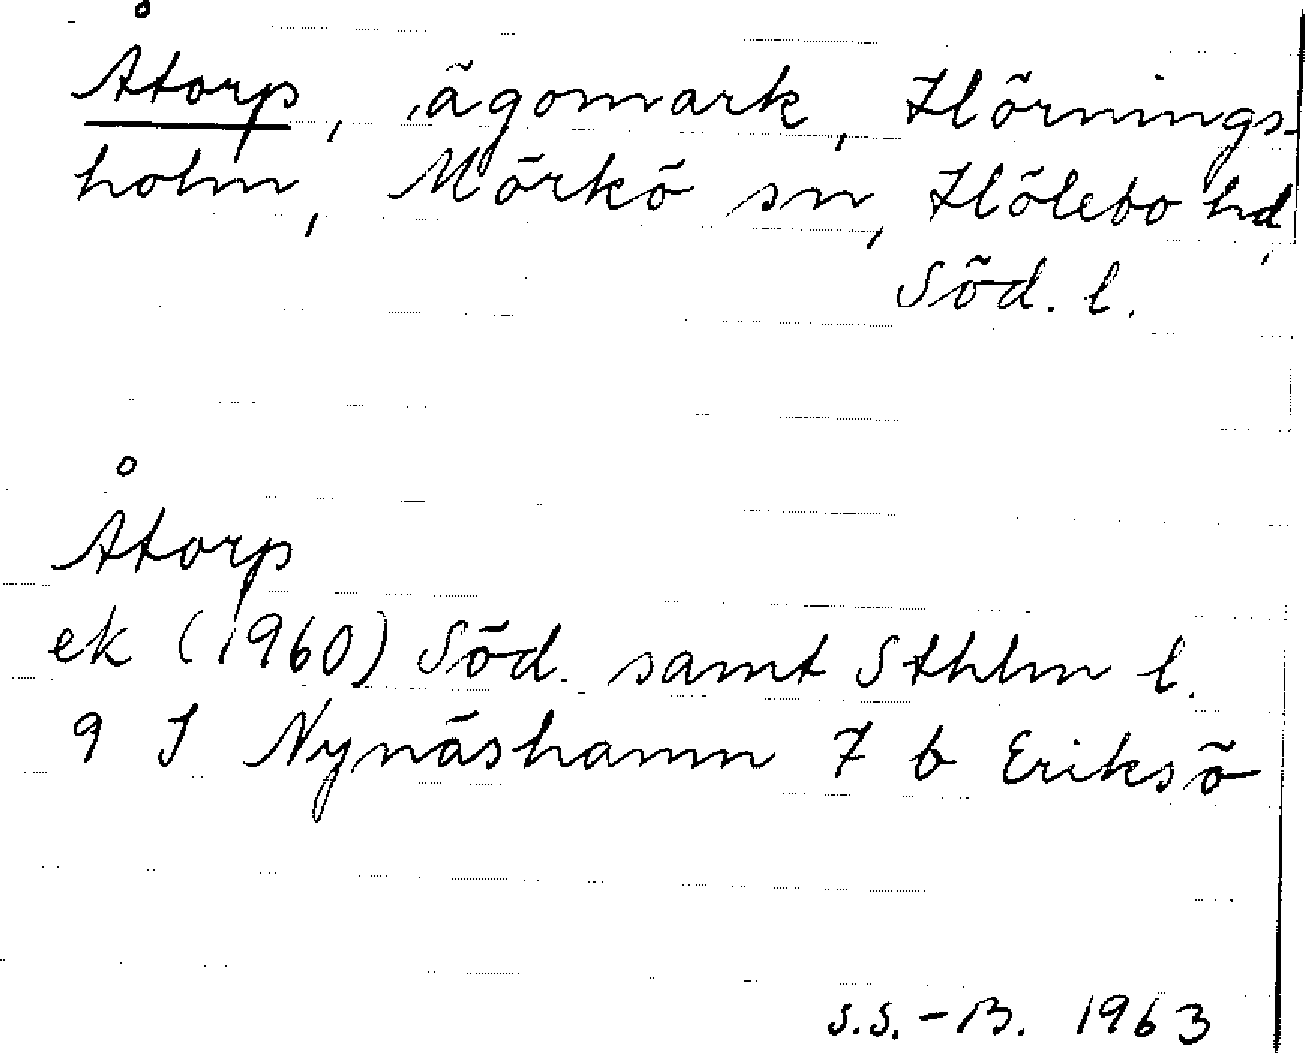 Åtorp, ägomark, Hörnings-
holm, Mörkö sn, Hölebo hd,
Söd. l.
Åtorp
ek (1960) Söd. samt Sthlm l.
9 I Nynäshamn 7 b Eriksö
S.S.-B. 1963